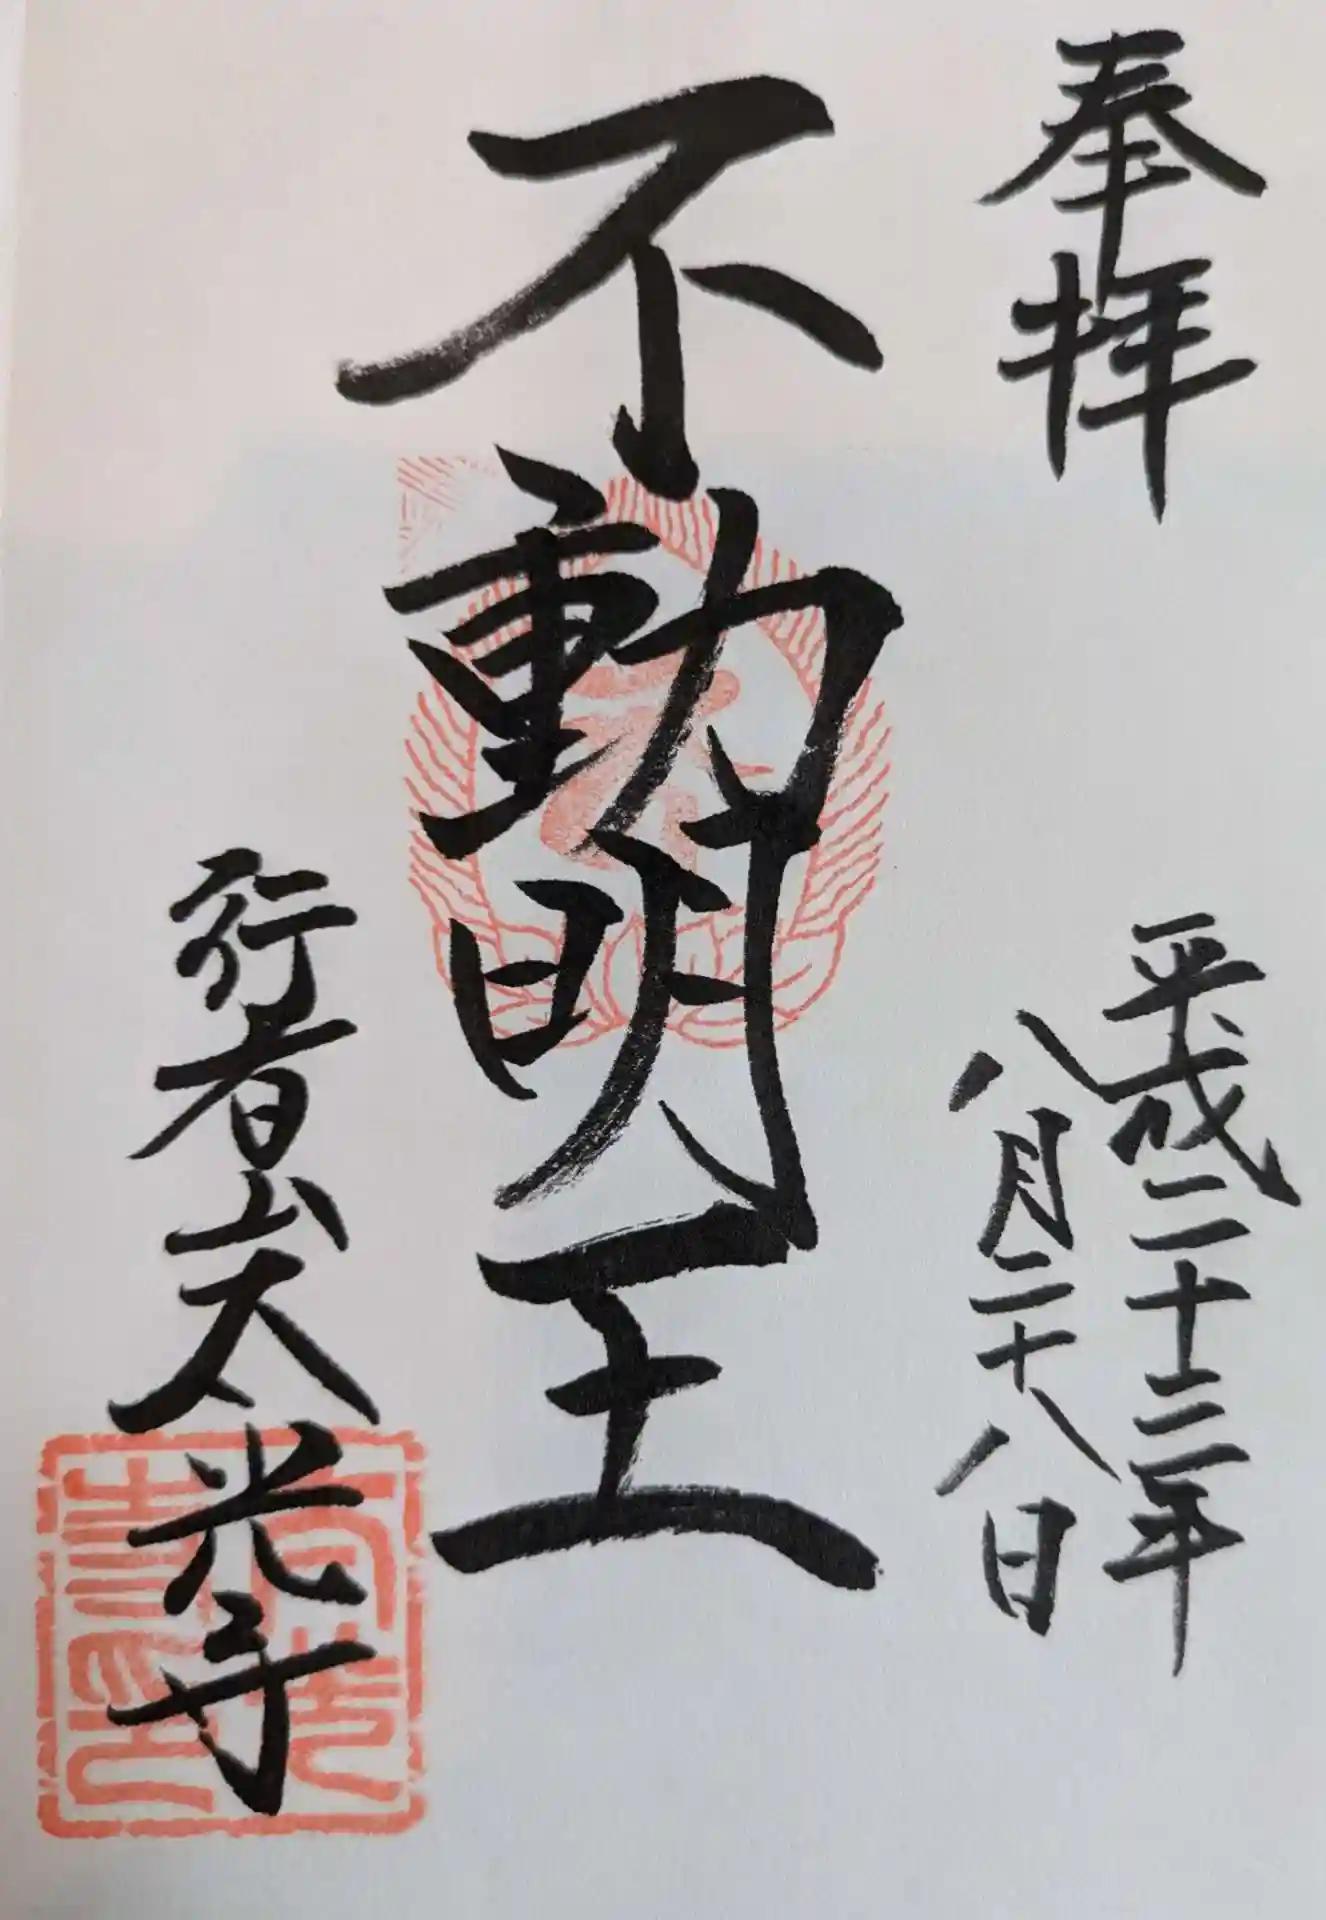 奉拝
平成二十二年
八月二十八日
不動明王
行者山太光寺